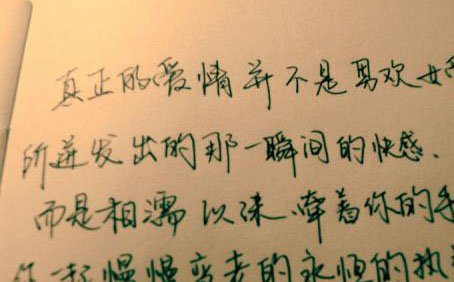 真正的爱情并不是男欢女
所迸发出的那一瞬间的快感.
而是相濡以沫.牵着你的手
一起慢慢变老的永恒的执